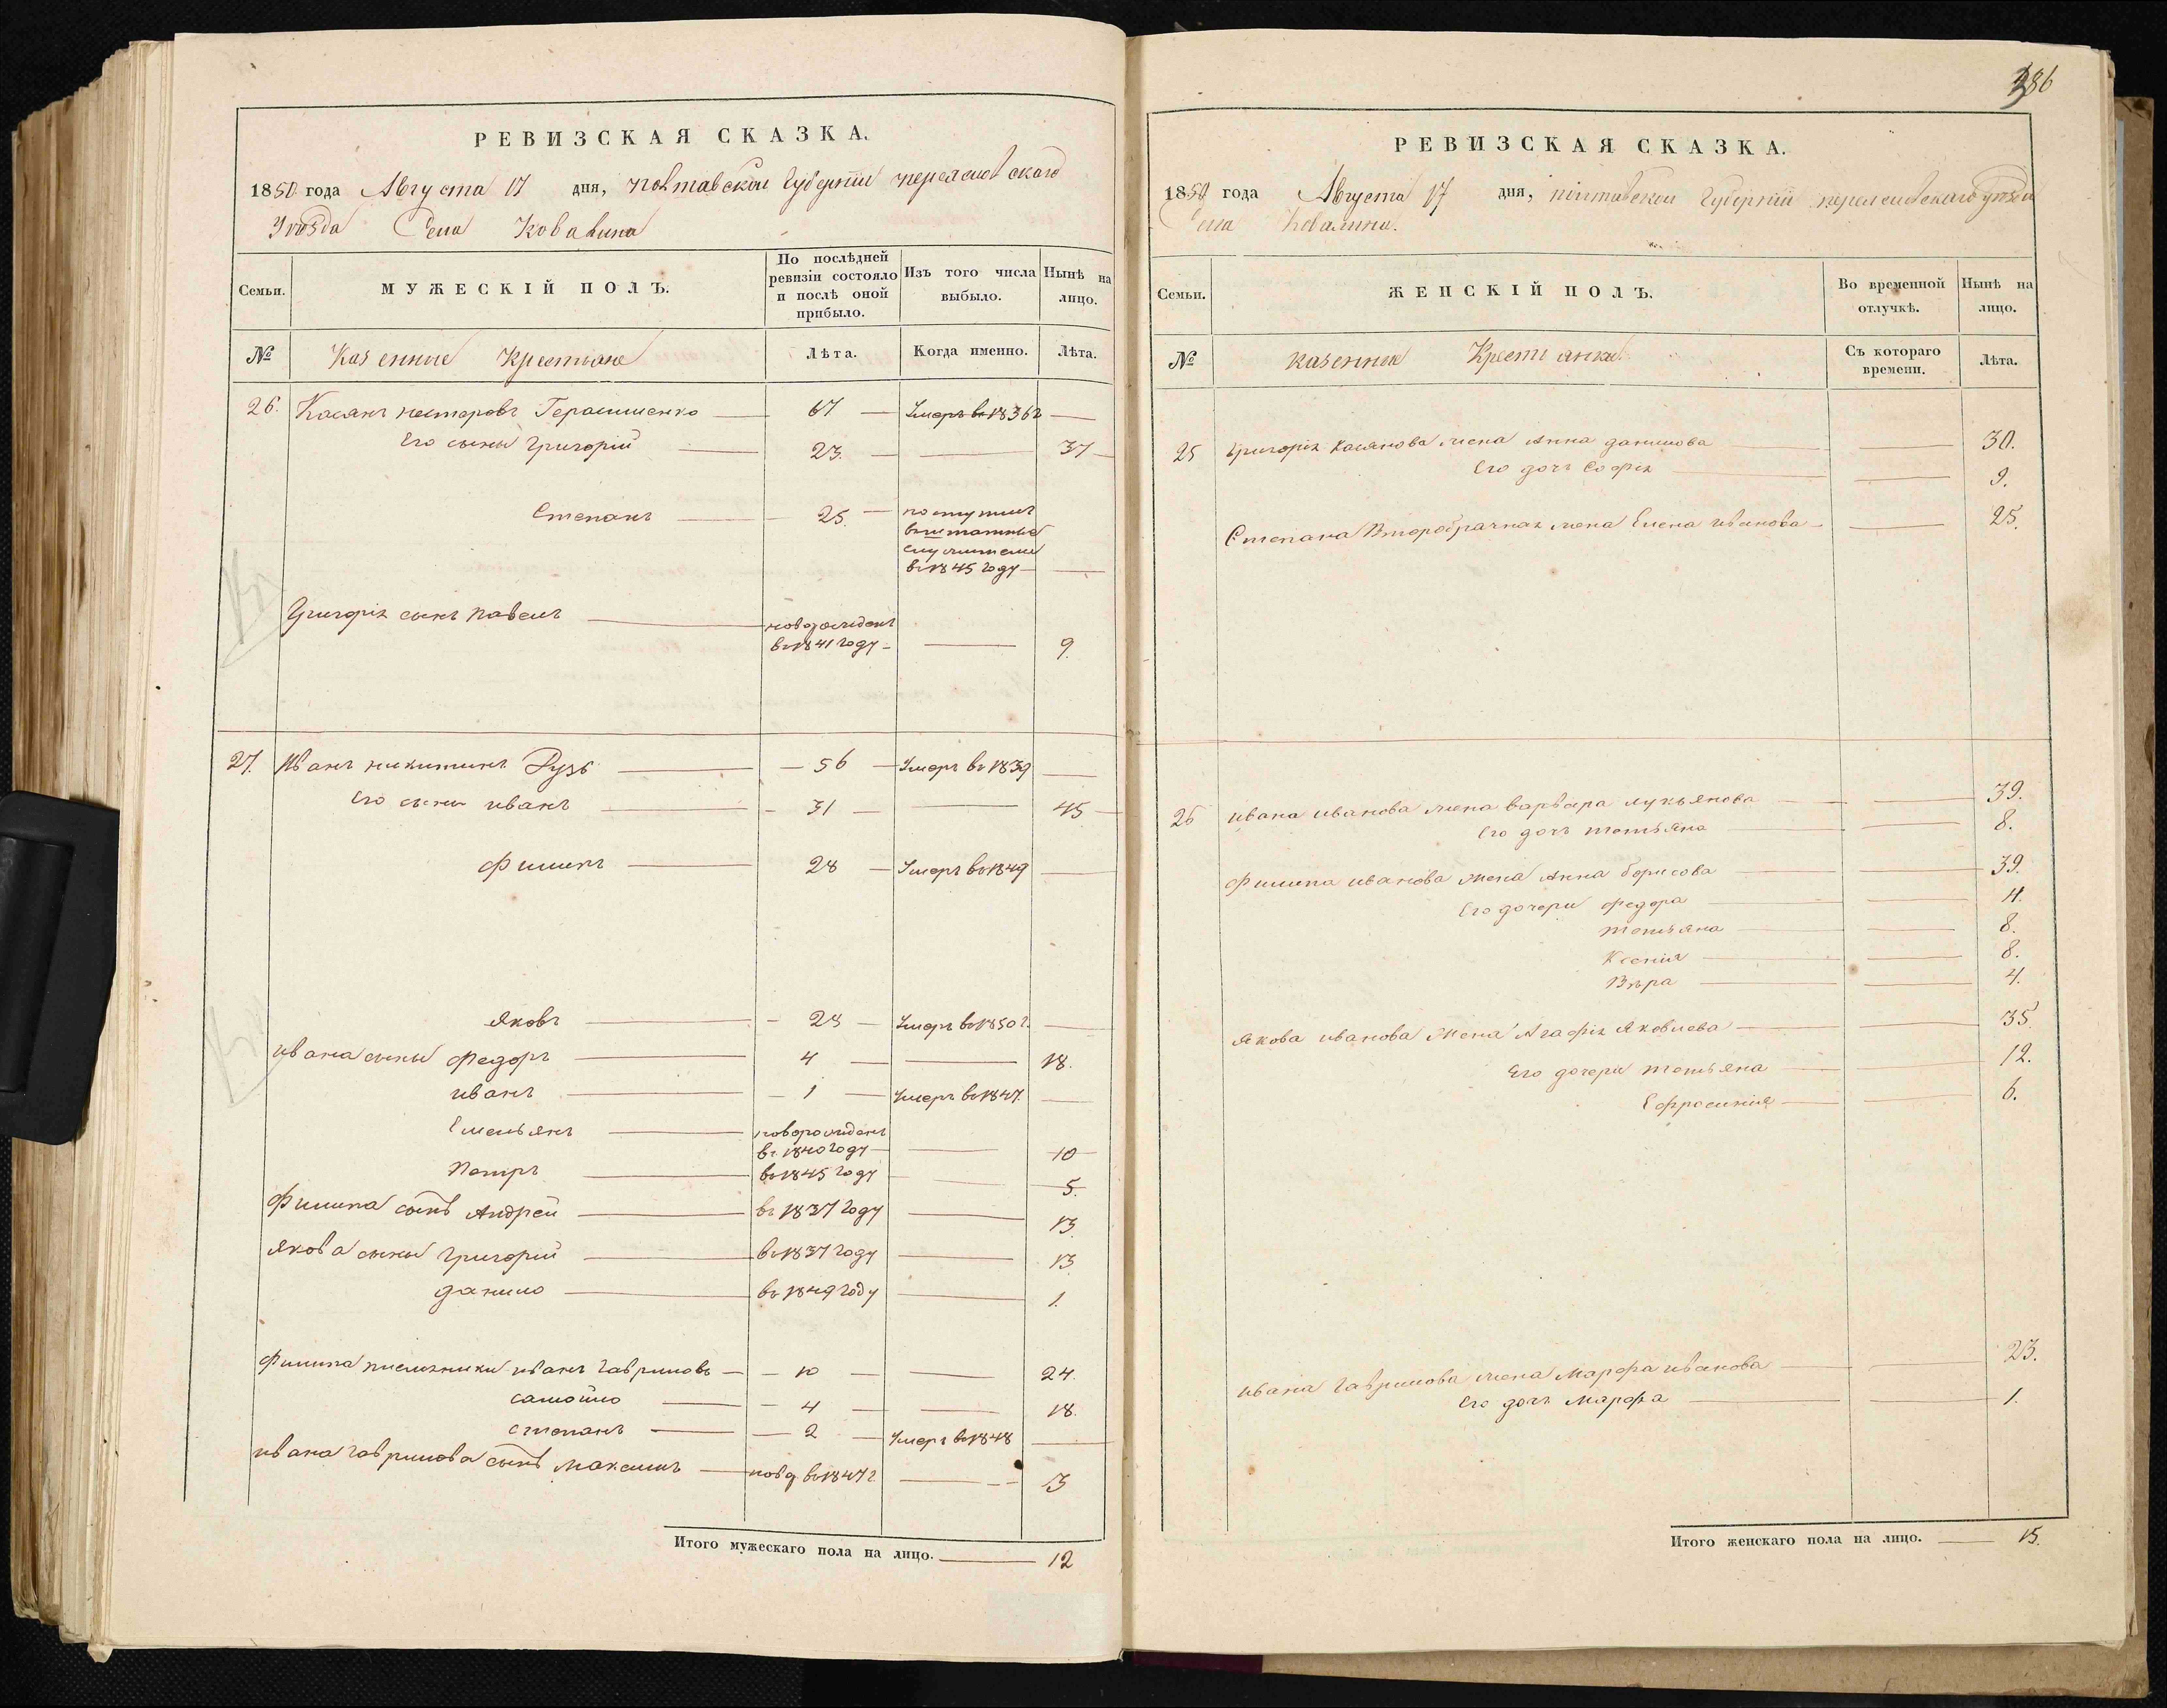 РЕВИЗСКАЯ СКАЗКА.
1850 года Августа 17 дня, полтавской Губерніи переяславского
Уѣзда Села Ковалина
Семьи.
МУЖЕСКІЙ ПОЛЪ.
По послѣдней ревизіи состояло и послѣ оной прибыло.
Изъ того числа выбыло.
Нынѣ на лицо.
№ Казенные Крестьяне Лѣта. Когда именно. Лѣта.
26. Касянъ нестеровъ Герасименко 67 Умеръ в 1836 г
Его сыны Григорій 23. 37
Степанъ 25. поступилъ
в штатные
служители
в 1845 году
Григорія сынъ павелъ новорожденъ
въ 1841 году 9.
27. Иванъ никитинъ Гузь 56 Умеръ въ 1839
Его сыны иванъ 31 45
филипъ 28 Умеръ въ 1849
яковъ 28 Умеръ въ 1850 г.
ивана сыны федоръ 4 18.
иванъ 1 Умеръ въ 1847.
Емельянъ новорожденъ
въ 1840 году 10
петръ въ 1845 году 5.
филипа сынъ Андрей въ 1837 году 13.
якова сыны григорій въ 1837 году 13
данило въ 1849 году 1.
филипа племяники иванъ гавриловъ 10 24.
самойло 4 18.
степанъ 2 Умеръ въ 1848
ивана гаврилова сынъ максимъ новор въ 1847 г. 3
Итого мужескаго пола на лицо. 12
386
РЕВИЗСКАЯ СКАЗКА.
1850 года Августа 17 дня, полтавской Губерніи переяславского уѣзда
Села Ковалина.
Семьи.
ЖЕНСКІЙ ПОЛЪ.
Во временной отлучкѣ.
Нынѣ на лицо.
№ казенные Крестьянки Съ котораго времени. Лѣта.
25 григорія касянова жена Анна данилова 30.
Его дочь Софія 9.
Степана Второбрачная жена Елена иванова 25.
26 ивана иванова жена варвара лукьянова 39.
Его дочь татьяна 8.
филипа иванова жена Анна борисова 39.
Его дочери федора 11.
татьяна 8.
Ксенія 8.
Вѣра 4.
якова иванова жена Агафія яковлева 35.
Его дочери татьяна 12.
Ефросинія 6.
ивана гаврилова жена марфа иванова 23.
Его дочь марфа 1.
Итого женскаго пола на лицо. 15.